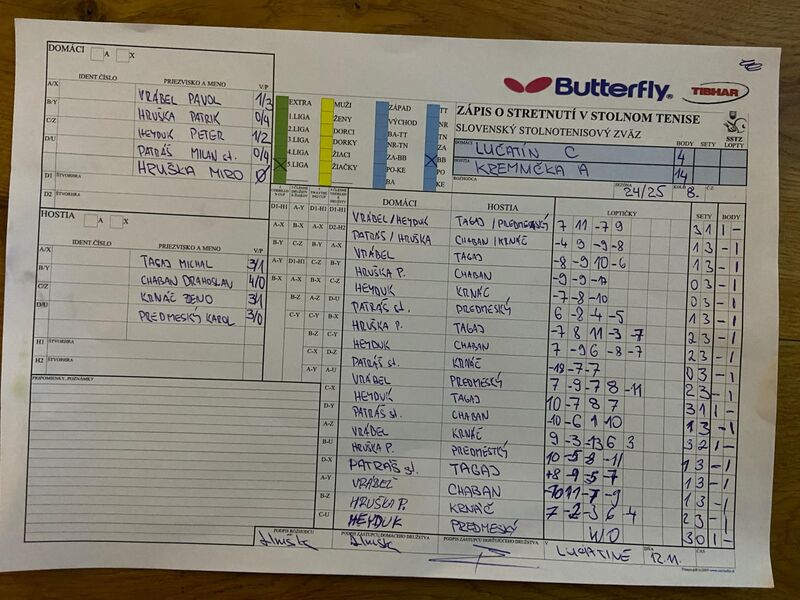 DOMÁCI A X
IDENT ČÍSLO PRIEZVISKO A MENO V/P
A/X VRÁBEL PAVOL 1/3
B/Y HRUŠKA PATRIK 0/4
C/Z HEYDUK PETER 1/2
D/U PATRÁŠ MILAN st. 0/4
D1 ŠTVORHRA HRUŠKA MIRO 0
D2
HOSTIA A X
IDENT ČÍSLO PRIEZVISKO A MENO V/P
A/X TAGAJ MICHAL 3/1
B/Y CHABAN DRAHOSLAN 4/0
C/Z KRNÁČ ZENO 3/1
D/U PREDMESKÝ KAROL 3/0
H1 ŠTVORHRA
H2 ŠTVORHRA
PRIPOMIENKY, POZNÁMKY
EXTRA
1.LIGA
2.LIGA
3.LIGA
4.LIGA
5.LIGA
MUŽI
ŽENY
DORCI
DORKY
ŽIACI
ŽIAČKY
ZÁPAD
VÝCHOD
BA-TT
NR-TN
ZA-BB
PO-KE
BA
TT
NR
TN
ZA
BB
PO
KE
Butterfly
TIBHAR
ZÁPIS O STRETNUTÍ V STOLNOM TENISE
SLOVENSKÝ STOLNOTENISOVÝ ZVÄZ
SSTZ
DOMÁCI LUČATÍN C BODY 4 SETY LOPTY
HOSTIA KREMNIČKA A 14
ROZHODCA SEZÓNA 24/25 KOLO 8. Č.Z
DOMÁCI HOSTIA LOPTIČKY SETY BODY
VRÁBEL/HEYDUK TAGAJ/PREDMESKÝ 7 11 -7 9 3 1 1 -
PATRÁŠ/HRUŠKA CHABAN/KRNÁČ -4 9 -9 -8 1 3 - 1
VRÁBEL TAGAJ -8 -9 10 -6 1 3 - 1
HRUŠKA P. CHABAN 0 3 - 1
HEYDUK KRNÁČ -7 -8 -10 0 3 - 1
PATRÁŠ st. PREDMESKÝ 6 -8 -4 -5 1 3 - 1
HRUŠKA P. TAGAJ -7 8 11 -3 -7 2 3 - 1
HEYDUK CHABAN 7 -9 6 -8 -7 2 3 - 1
PATRÁŠ st. KRNÁČ -7 -7 0 3 - 1
VRÁBEL PREDMESKÝ 7 -9 -7 8 -11 2 3 - 1
HEYDUK TAGAJ 10 -7 8 7 3 1 1 -
PATRÁŠ st. CHABAN 1 3 - 1
VRÁBEL KRNÁČ 9 -3 -13 6 3 3 2 1 -
HRUŠKA P. PREDMESTKÝ 10 -5 -8 -11 1 3 - 1
PATRÁŠ st. TAGAJ -9 -5 -7 1 3 - 1
VRÁBEL CHABAN -10 11 -7 -9 1 3 - 1
HRUŠKA P. KRNÁČ 7 -2 -3 6 -4 2 3 - 1
HEYDUK PREDMESKÝ WO 3 0 1 -
PODPIS ROZHODCU PODPIS ZÁSTUPCU DOMÁCEHO DRUŽSTVA PODPIS ZÁSTUPCU HOSŤUJÚCEHO DRUŽSTVA V LUČATINE DŇA 12.11. ČAS